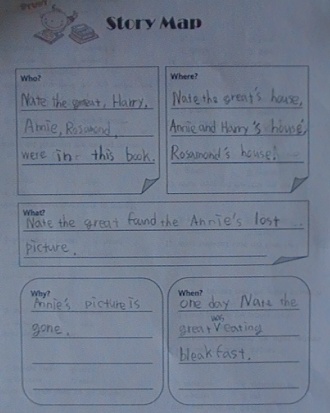 Print
Story Map
Who?
Nate the great, Harry,
Annie, Rosamond,
were in this book.
Where?
Nate the great's house,
Annie and Harry's house,
Rosamond's house.
What?
Nate the great found the Annie's lost
picture.
Why?
Annie's picture is
gone.
When?
One day Nate the
great was eating
bleakfast.